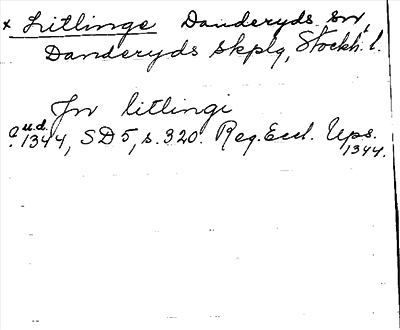 x Litlinge Danderyds sn,
Danderyds skplg, Stockh. l.
Jn litlingi
u.d. 1344, SD5, s. 320. Reg. Eccl. Ups.
1344.